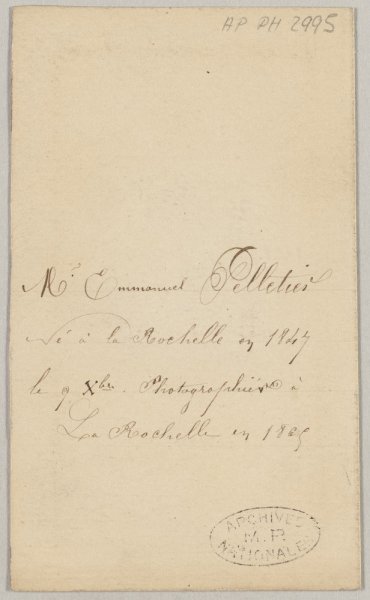 AP PH 2995
Mr Emmanuel Pelletier
Né à la Rochelle en 1847
le 9 Xbre. Photographié à
La Rochelle en 1865
ARCHIVES
M. P.
NATIONALES